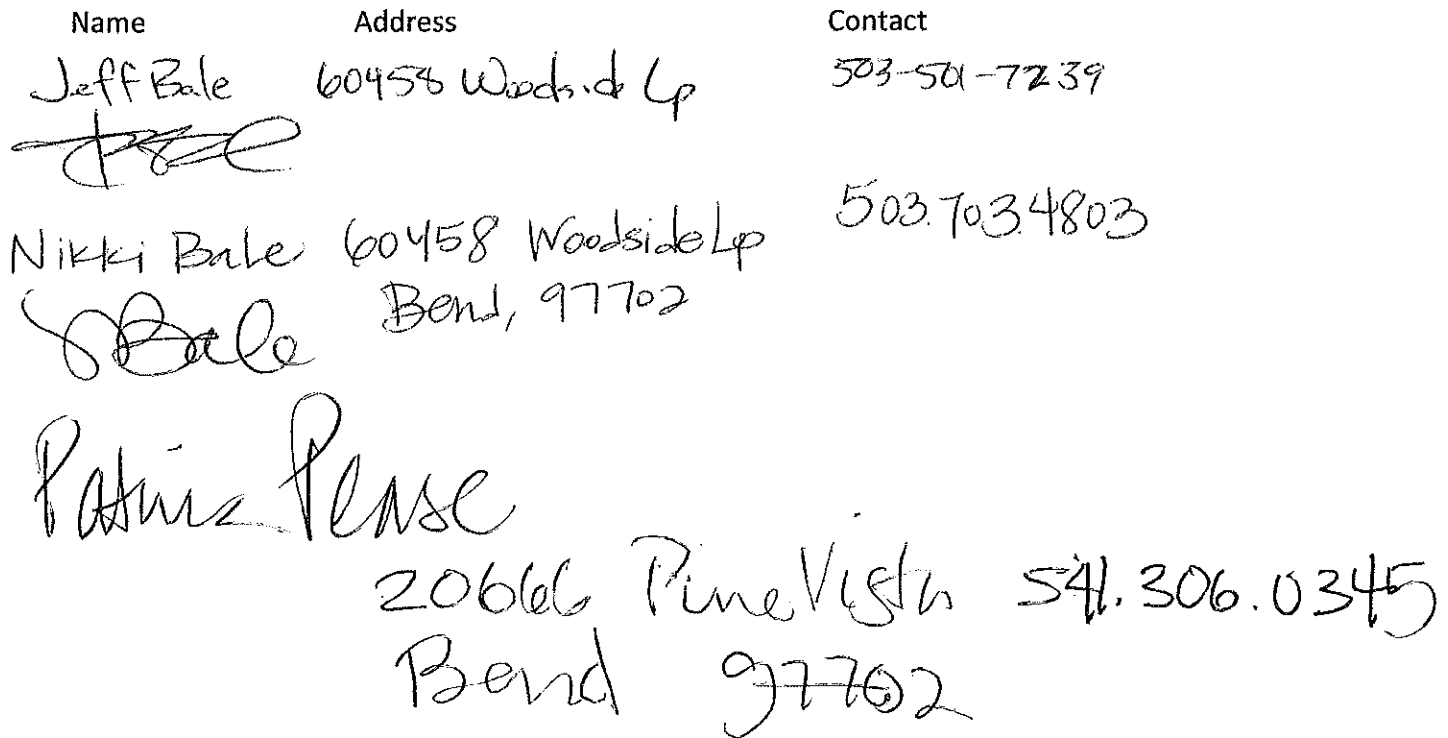 Name Address Contact
Jeff Bale 60458 Woodside Lp 503-501-7239
Nikki Bale 60458 Woodside Lp 503.703.4803
Bale Bend, 97702
Pease
20666 Pine Vista 541.306.0345
Bend 97702